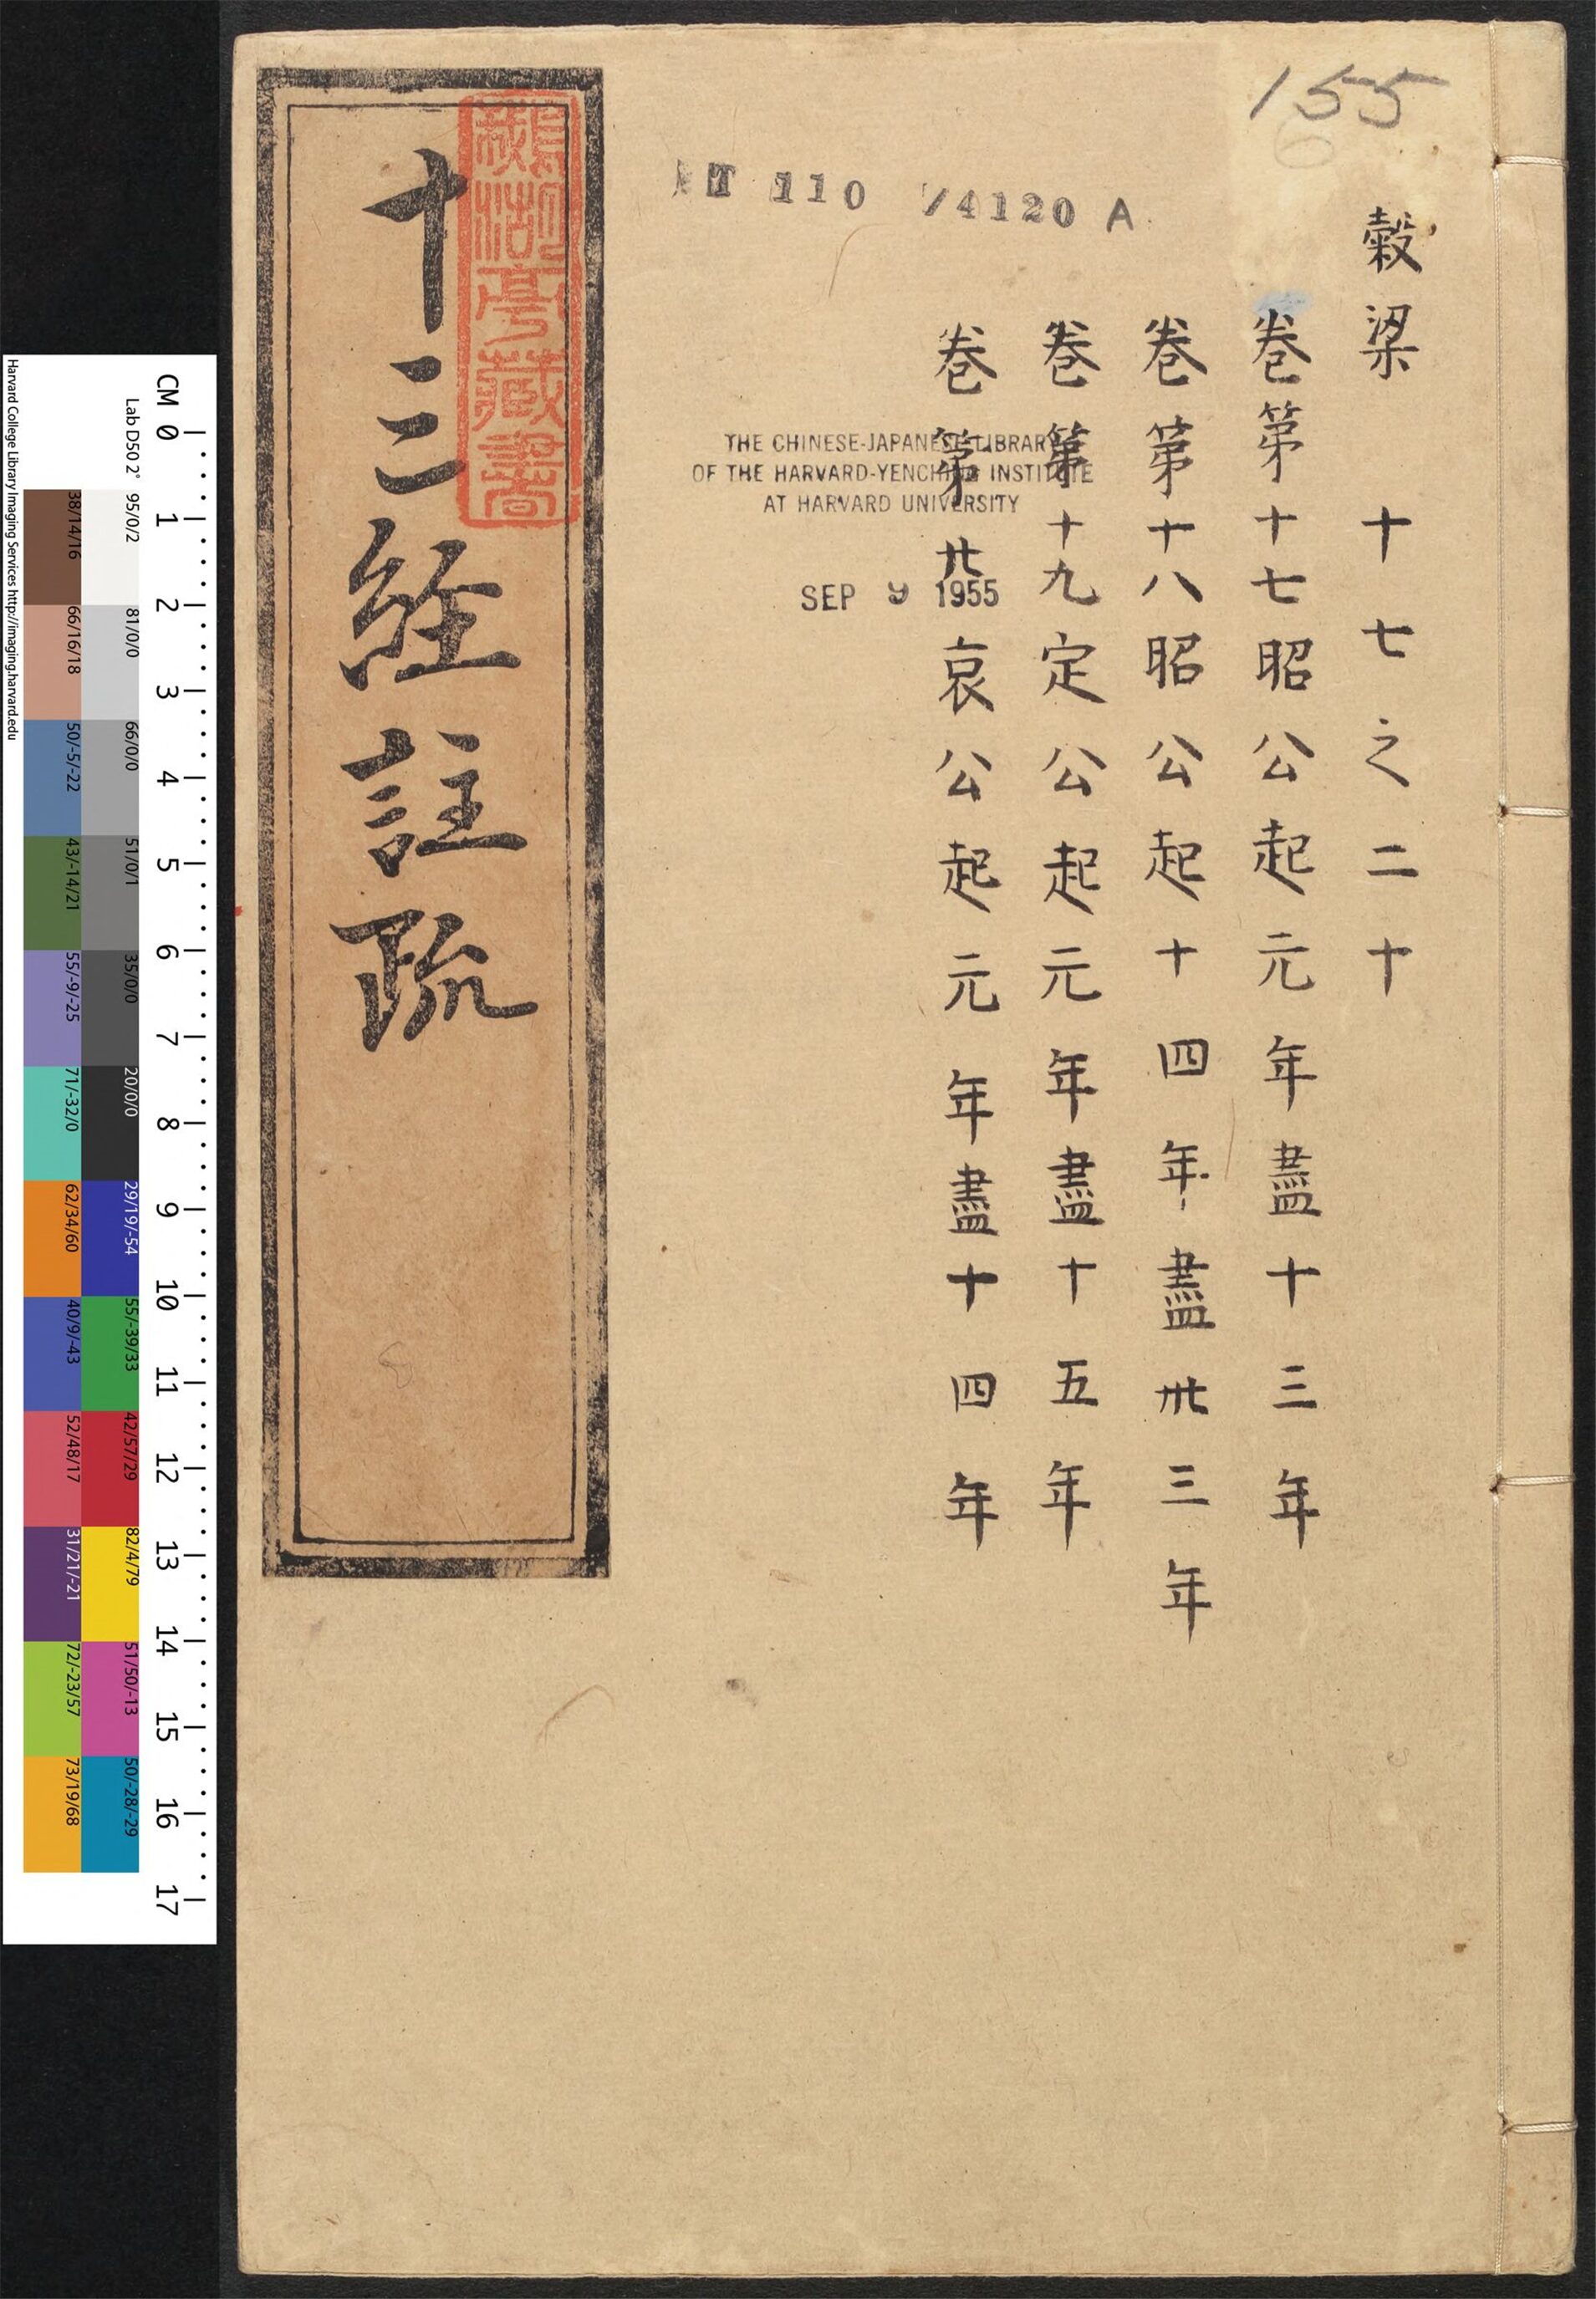 155
穀梁 十七之二十
卷第十七昭公起元年盡十三年
卷第十八昭公起十四年盡卅三年
卷第十九定公起元年盡十五年
卷第廿哀公起元年盡十四年
T 110 /4120 A
THE CHINESE-JAPANESE LIBRARY
OF THE HARVARD-YENCHING INSTITUTE
AT HARVARD UNIVERSITY
SEP 9 1955
十三経註疏
亭藏書
CM 0 1 2 3 4 5 6 7 8 9 10 11 12 13 14 15 16 17
Lab D50 2°
95/0/2 81/0/0 66/0/0 51/0/1 35/0/0 20/0/0 29/19/-54 55/-39/33 42/57/29 82/4/79 51/50/-13 50/-28/-29
38/14/16 66/16/18 50/-5/-22 43/-14/21 55/-9/-25 71/-32/0 62/34/60 40/9/-43 52/48/17 31/21/-21 72/-23/57 73/19/68
Harvard College Library Imaging Services http://imaging.harvard.edu